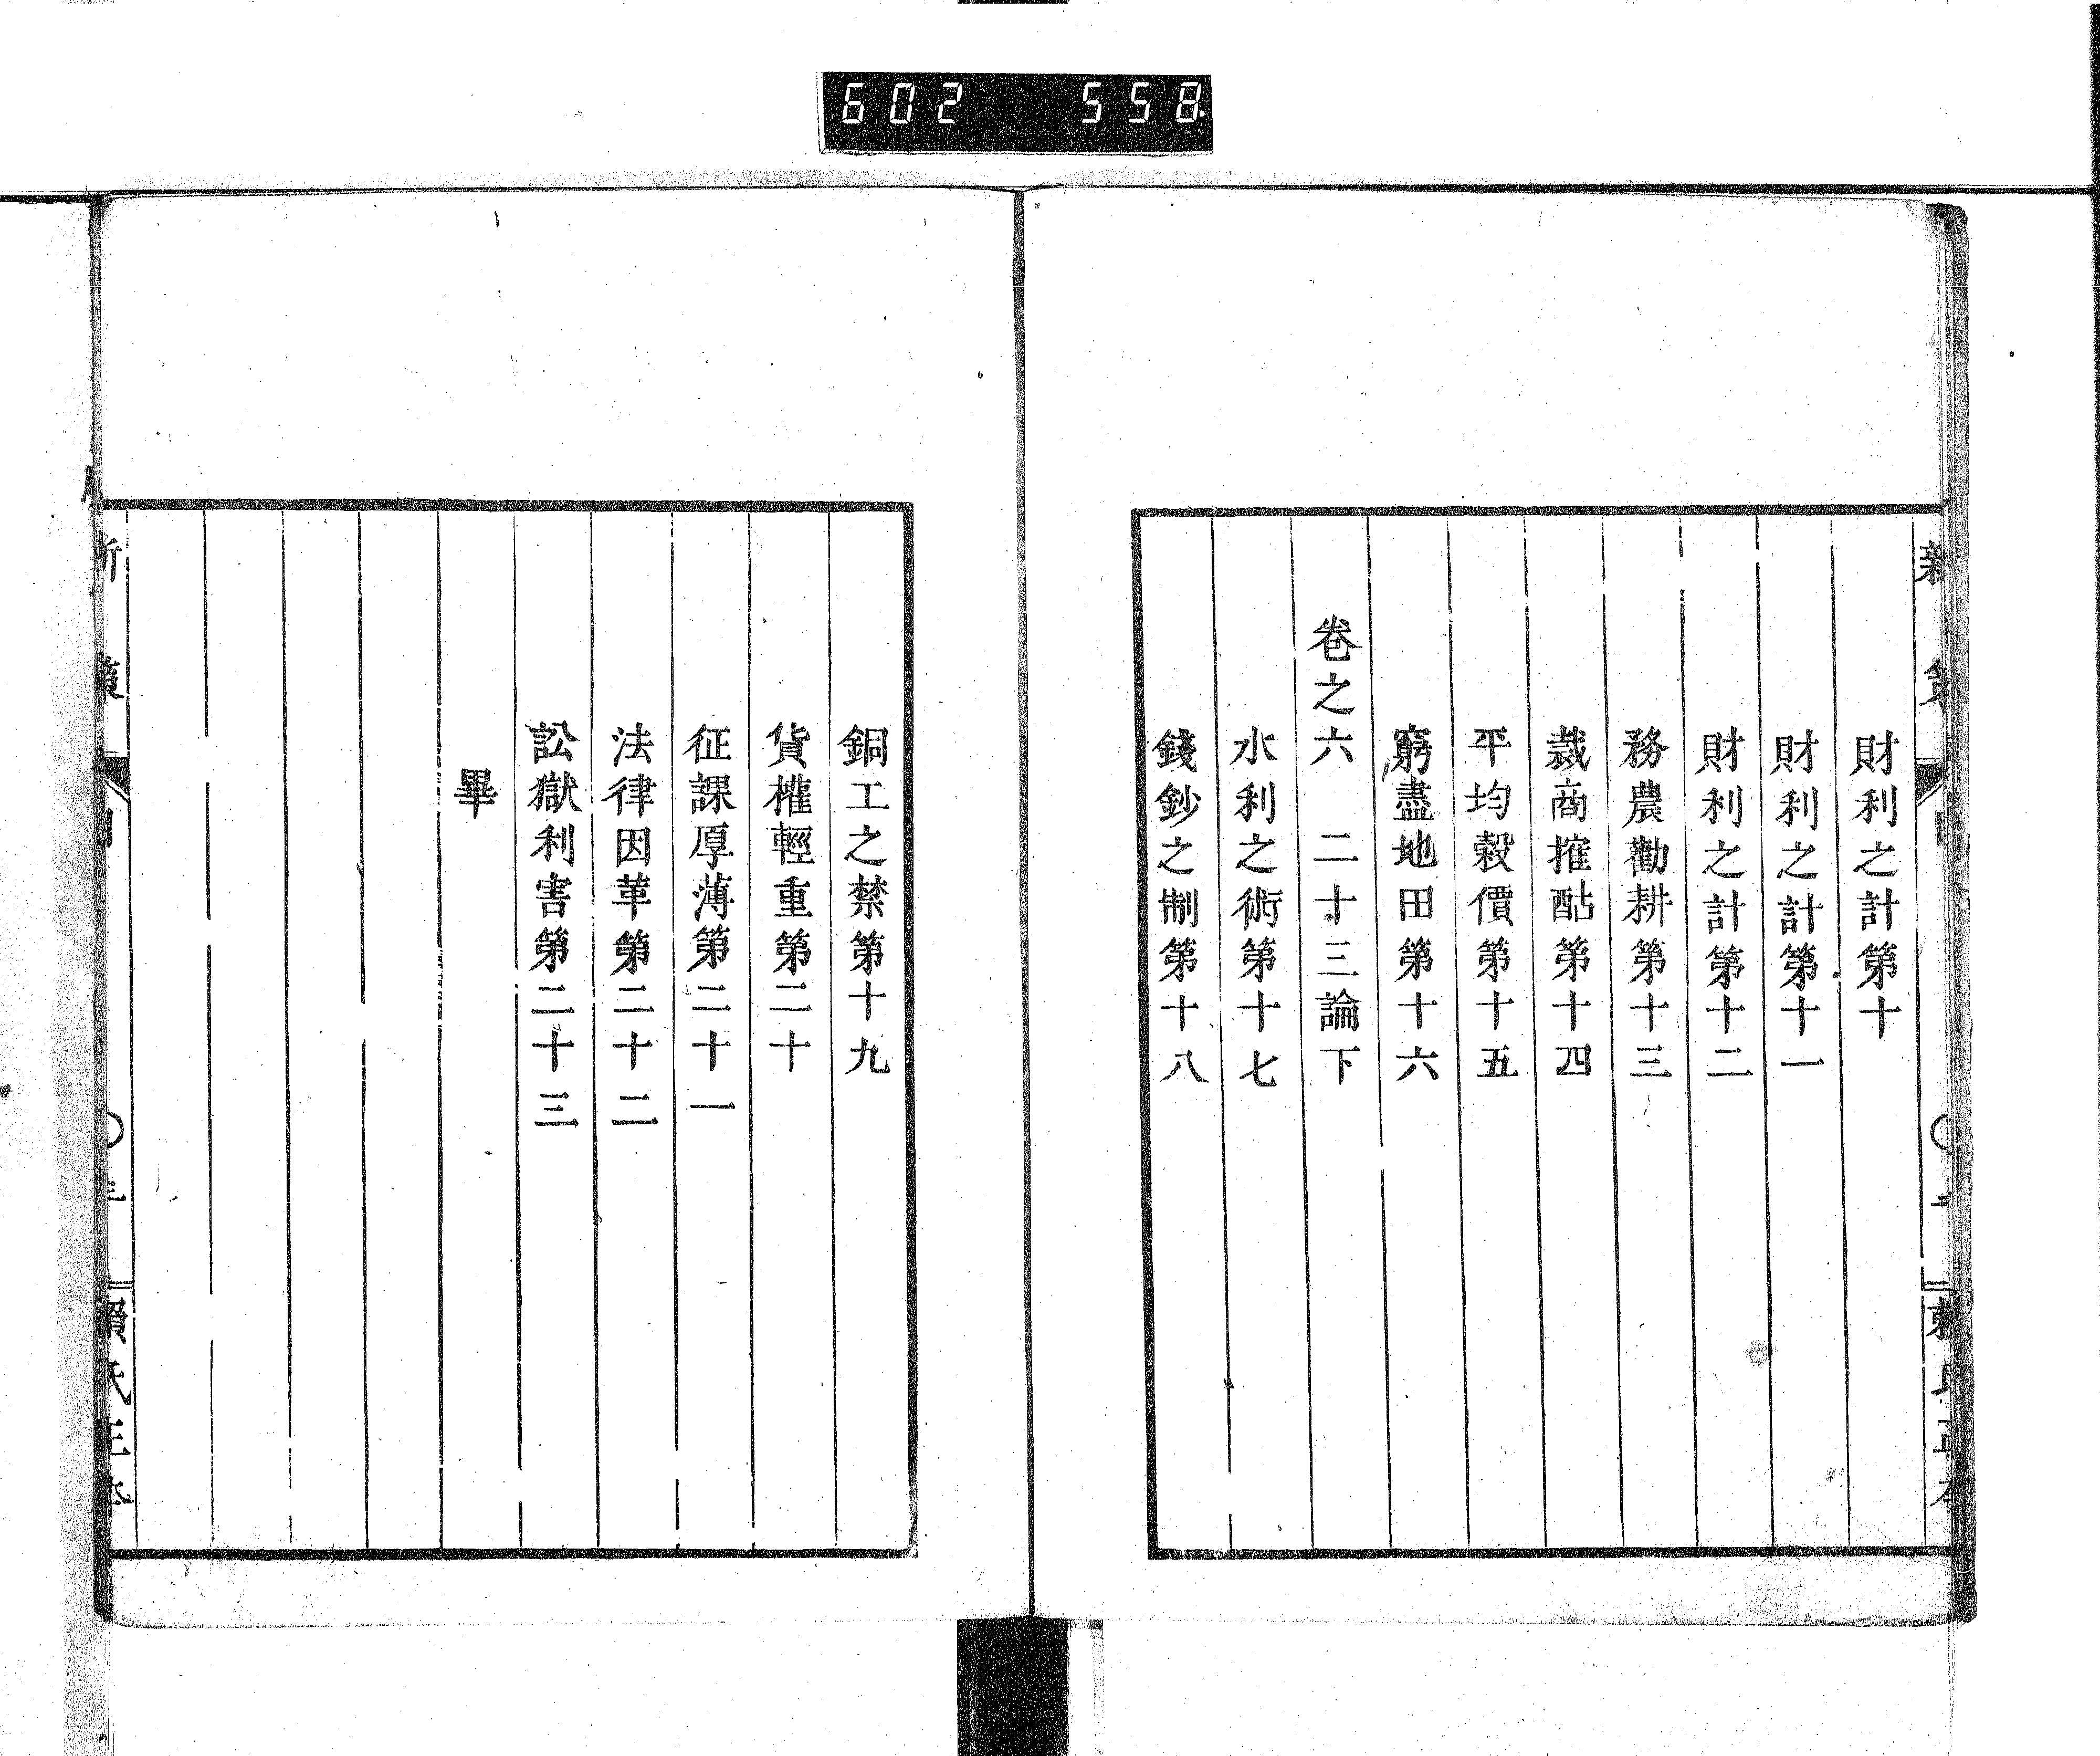 602 558
財利之計第十
財利之計第十一
財利之計第十二
務農勸耕第十三
裁商搉酤第十四
平均穀價第十五
窮盡地田第十六
卷之六 二十三論下
水利之術第十七
錢鈔之制第十八
銅工之禁第十九
貨權輕重第二十
征課厚薄第二十一
法律因革第二十二
訟獄利害第二十三
畢